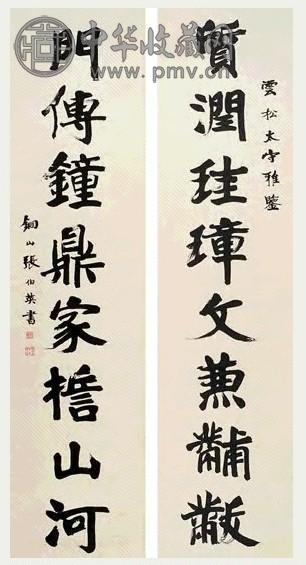 中华收藏网
www.pmv.cn
雲松太守雅鑒
質潤珪璋文兼黼黻
門傳鐘鼎家誓山河
銅山張伯英書